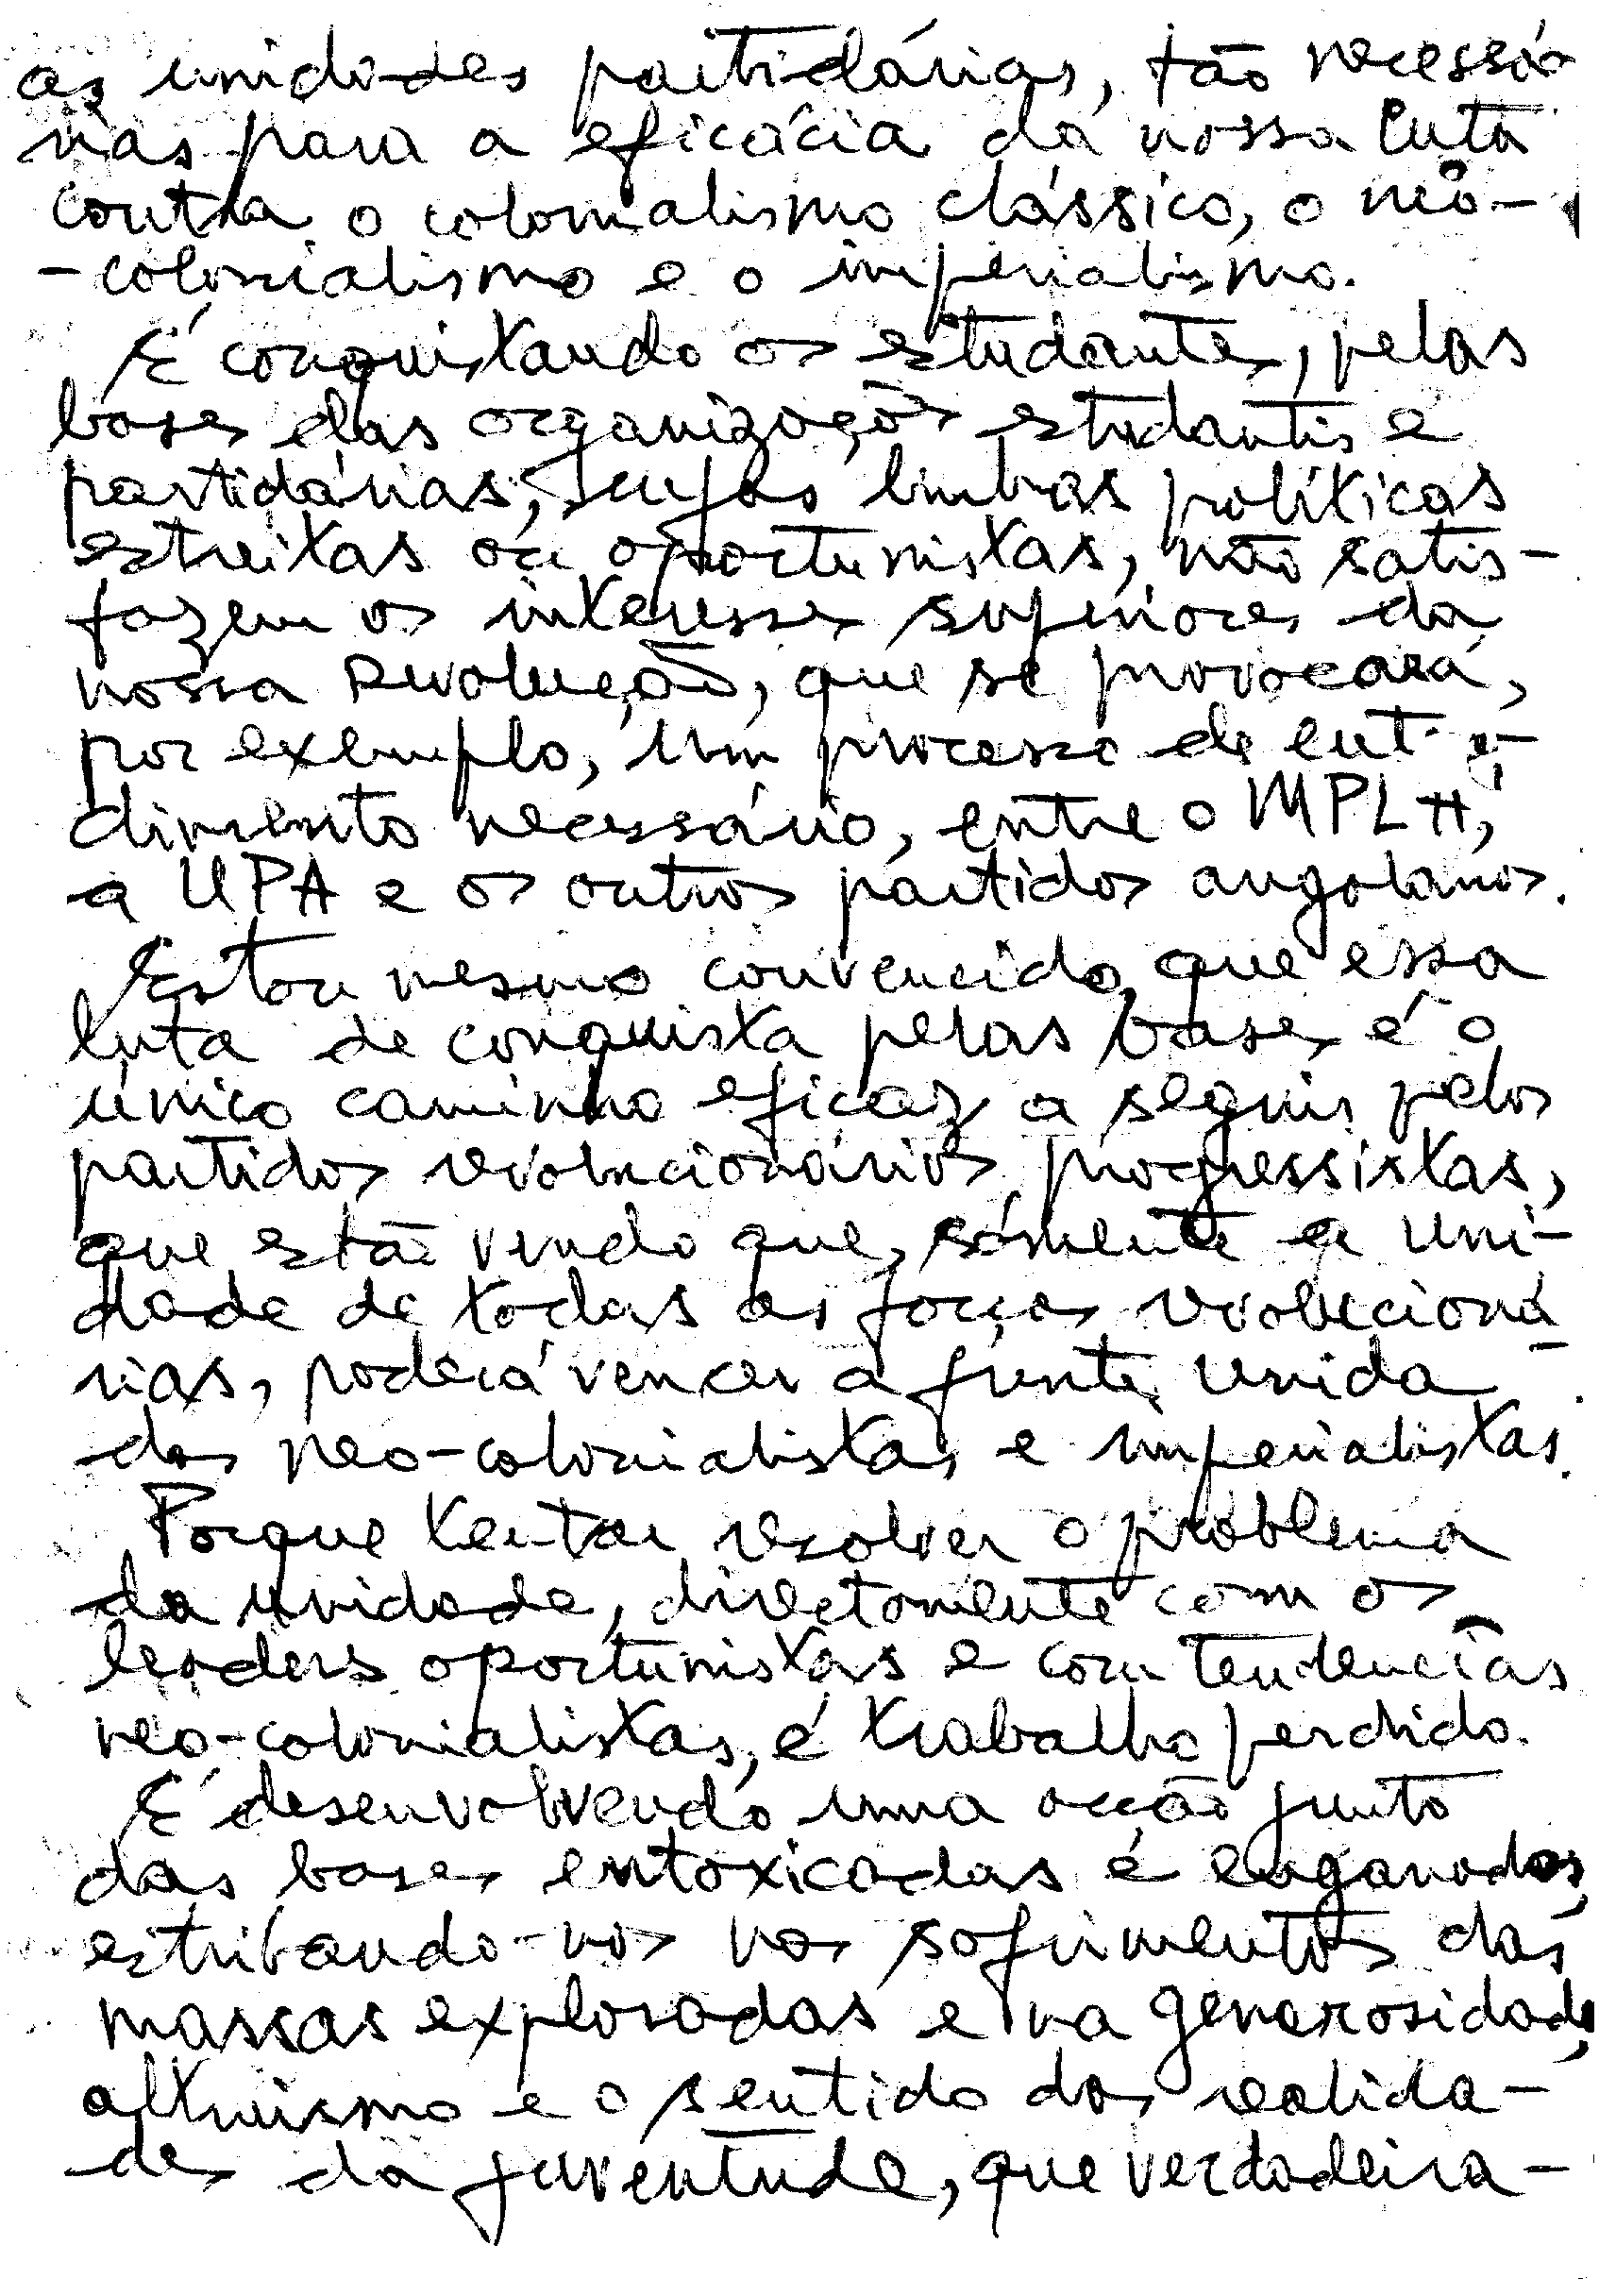 as unidades partidárias, tão necessá-
rias para a eficácia da nossa luta
contra o colonialismo clássico, o neo-
-colonialismo e o imperialismo.
É conquistando os estudantes, pelas
bases das organizações estudantis e
partidárias, cujas linhas políticas
estreitas ou oportunistas, não satis-
fazem os interesses superiores da
nossa Revolução, que se provocará,
por exemplo, um processo de enten-
dimento necessário, entre o MPLA,
a UPA e os outros partidos angolanos.
Estou mesmo convencido, que essa
luta de conquista pelas bases, é o
único caminho eficaz a seguir pelos
partidos revolucionários progressistas,
que estão vendo que, sómente a uni-
dade de todas as forças revolucioná-
rias, poderá vencer a frente unida
dos neo-colonialistas e imperialistas.
Porque tentar resolver o problema
da unidade, directamente com os
leaders oportunistas e com tendências
neo-colonialistas, é trabalho perdido.
É desenvolvendo uma acção junto
das bases entoxicadas e enganadas,
estribando-nos nos sofrimentos das
massas exploradas e na generosidade,
altruismo e o sentido das realida-
des da juventude, que verdadeira-